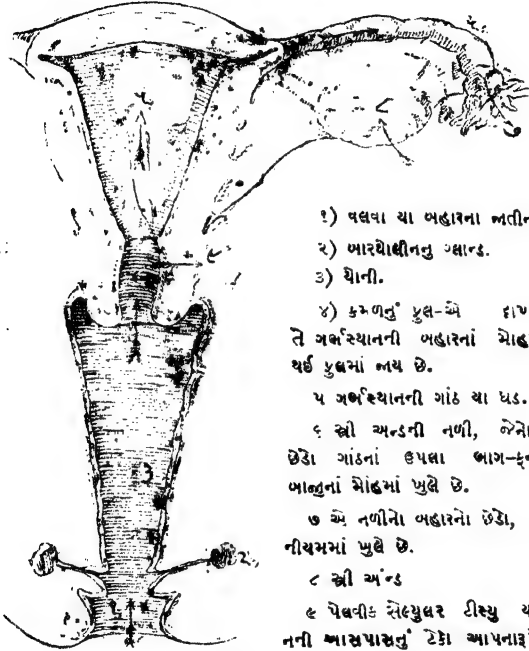 ૧) વલવા યા બહારના જાતીન
૨) બારથોલીનનુ ગ્લાન્ડ.
૩) યોની.
૪) કમળનું ફુલ-એ દાખ
તે ગર્ભસ્થાનની બહારનાં મોહ
થઈ ફુલમાં જાય છે.
૫ ગર્ભસ્થાનની ગાંઠ યા ધડ.
૬ સ્ત્રી અન્ડની નળી, જેનો
છેડો ગાંઠનાં ઉપલા ભાગ-ફન
બાજુનાં મોહમાં ખુલે છે.
૭ એ નળીનો બહારનો છેડો,
નીયમમાં ખુલે છે.
૮ સ્ત્રી અંન્ડ
૯ પેલવીક સેલ્યુલર ટીસ્યુ ય
નની આસપાસનું ટેકો આપનારૂ
૮
૩
૨
૧